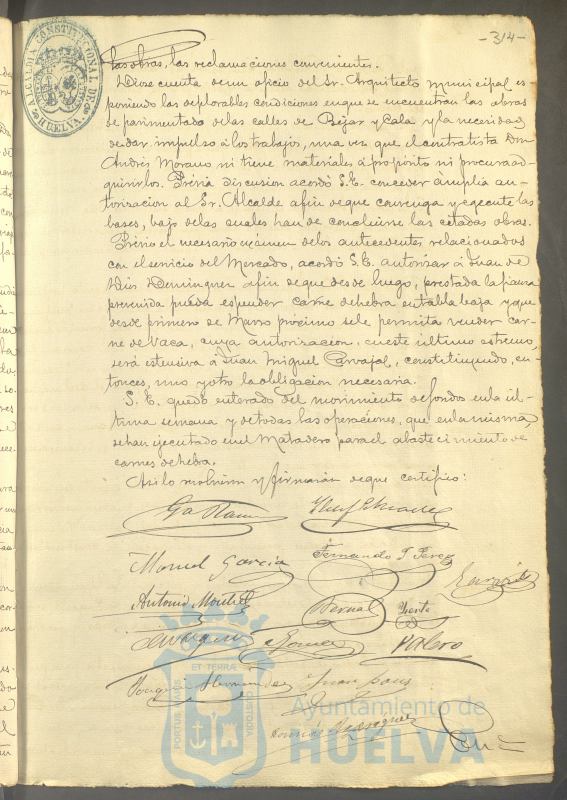 -314-
ALCALDIA CONSTITUCIONAL DE HUELVA
las obras, las reclamaciones convenientes.
Diose cuenta de un oficio del Sr. Arquitecto municipal ex-
poniendo las deplorables condiciones en que se encuentran las obras
de pavimentado de las calles de Bejar y Cala y la necesidad
de dar impulso á los trabajos, una vez que el contratista Don
Andrés Morano ni tiene materiales á proposito ni procura ad-
quirirlos. Prévia discusion acordó S.E. conceder ámplia au-
torizacion al Sr. Alcalde afin de que convenga y ejecute las
bases, bajo de las cuales han de concluirse las citadas obras.
Prévio el necesario exámen de los antecedentes relacionados
con el servicio del Mercado, acordó S.E. autorizar á Juan de
Dios Dominguez afin de que desde luego, prestada la fianza
prevenida pueda expender carne de hebra en tabla baja y que
desde primero de Marzo próximo se le permita vender car-
ne de vaca, cuya autorizacion, en este último extremo,
será extensiva á Juan Miguel Carvajal, constituyendo, en-
tonces, uno y otro la obligacion necesaria.
S. E. quedó enterado del movimiento de fondos en la úl-
tima semana y de todas las operaciones, que en la misma,
se han ejecutado en el Matadero para el abastecimiento de
carnes de hebra.
Asi lo resolvieron y firmarán de que certifico:
Manuel Garcia
Fernando P Perez
Antonio
Bernal
Vazquez
Gomez
Valero
Hernandez
Juan
PORTUS MARIS ET TERRÆ CUSTODIA
Ayuntamiento de
HUELVA